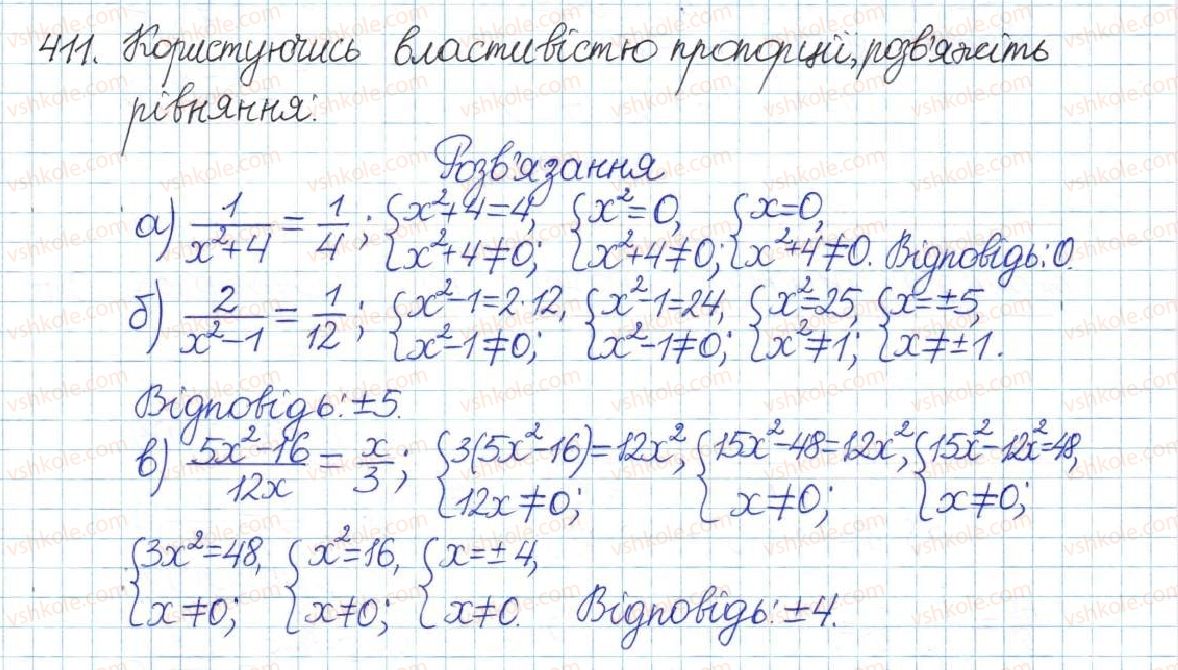 411. Користуючись властивістю пропорції, розв'яжіть
рівняння:
Розв'язання
а) 1/(x²+4) = 1/4; {x²+4=4, x²+4≠0; {x²=0, x²+4≠0; {x=0, x²+4≠0. Відповідь: 0.
б) 2/(x²-1) = 1/12; {x²-1=2·12, x²-1≠0; {x²-1=24, x²-1≠0; {x²=25, x²≠1; {x=±5, x≠±1.
Відповідь: ±5.
в) (5x²-16)/(12x) = x/3; {3(5x²-16)=12x², 12x≠0; {15x²-48=12x², x≠0; {15x²-12x²=48, x≠0;
{3x²=48, x≠0; {x²=16, x≠0; {x=±4, x≠0. Відповідь: ±4.